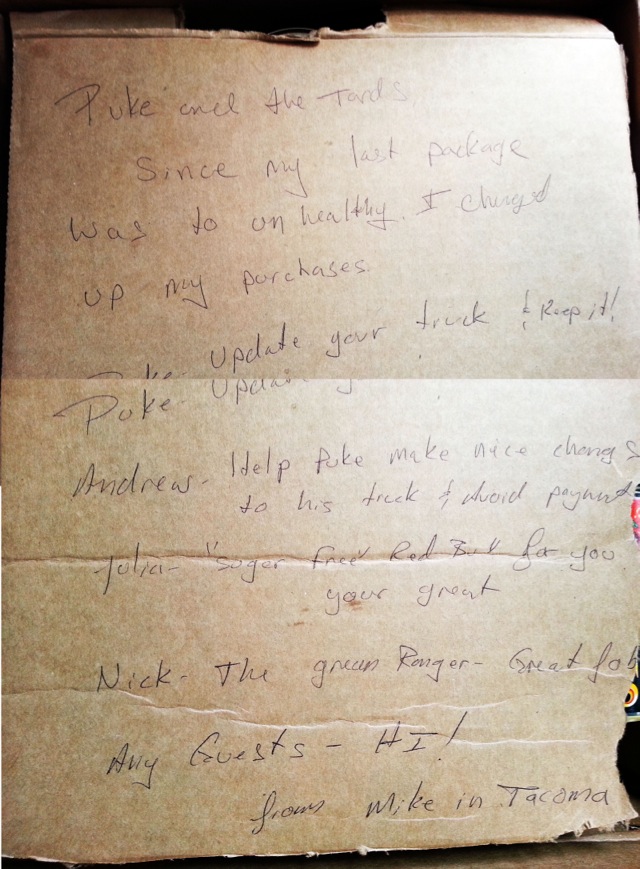 Puke and the Tards,
Since my last package
was to unhealthy. I changed
up my purchases.
Puke- Update your truck & Keep it!
Puke- Update
Andrew- Help Puke make nice changes
to his truck & Avoid payment
Julia- "Suger free" Red Bull for you
your great
Nick- The green Ranger- Great Job
Any Guests - HI!
from Mike in Tacoma